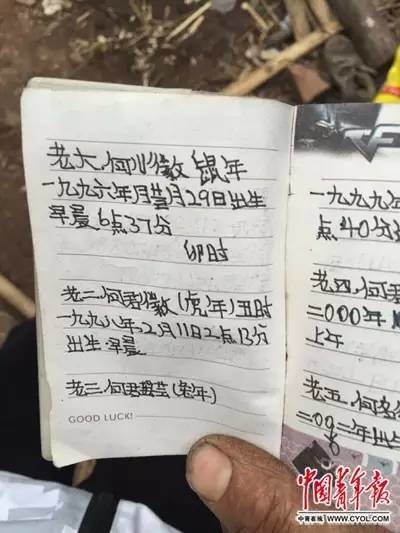 老大.何川 鼠年
一九九六年月 月29日出生
早晨6点37分
卯时
老二.何君 (虎年)丑时
一九九八年2月11日2点13分
出生.早晨
老三.何君
GOOD LUCK!
一九九九年
点40分
老四.何君
二000年
上午
老五.何
二0 二年出
中国青年报
中青在线 WWW.CYOL.COM